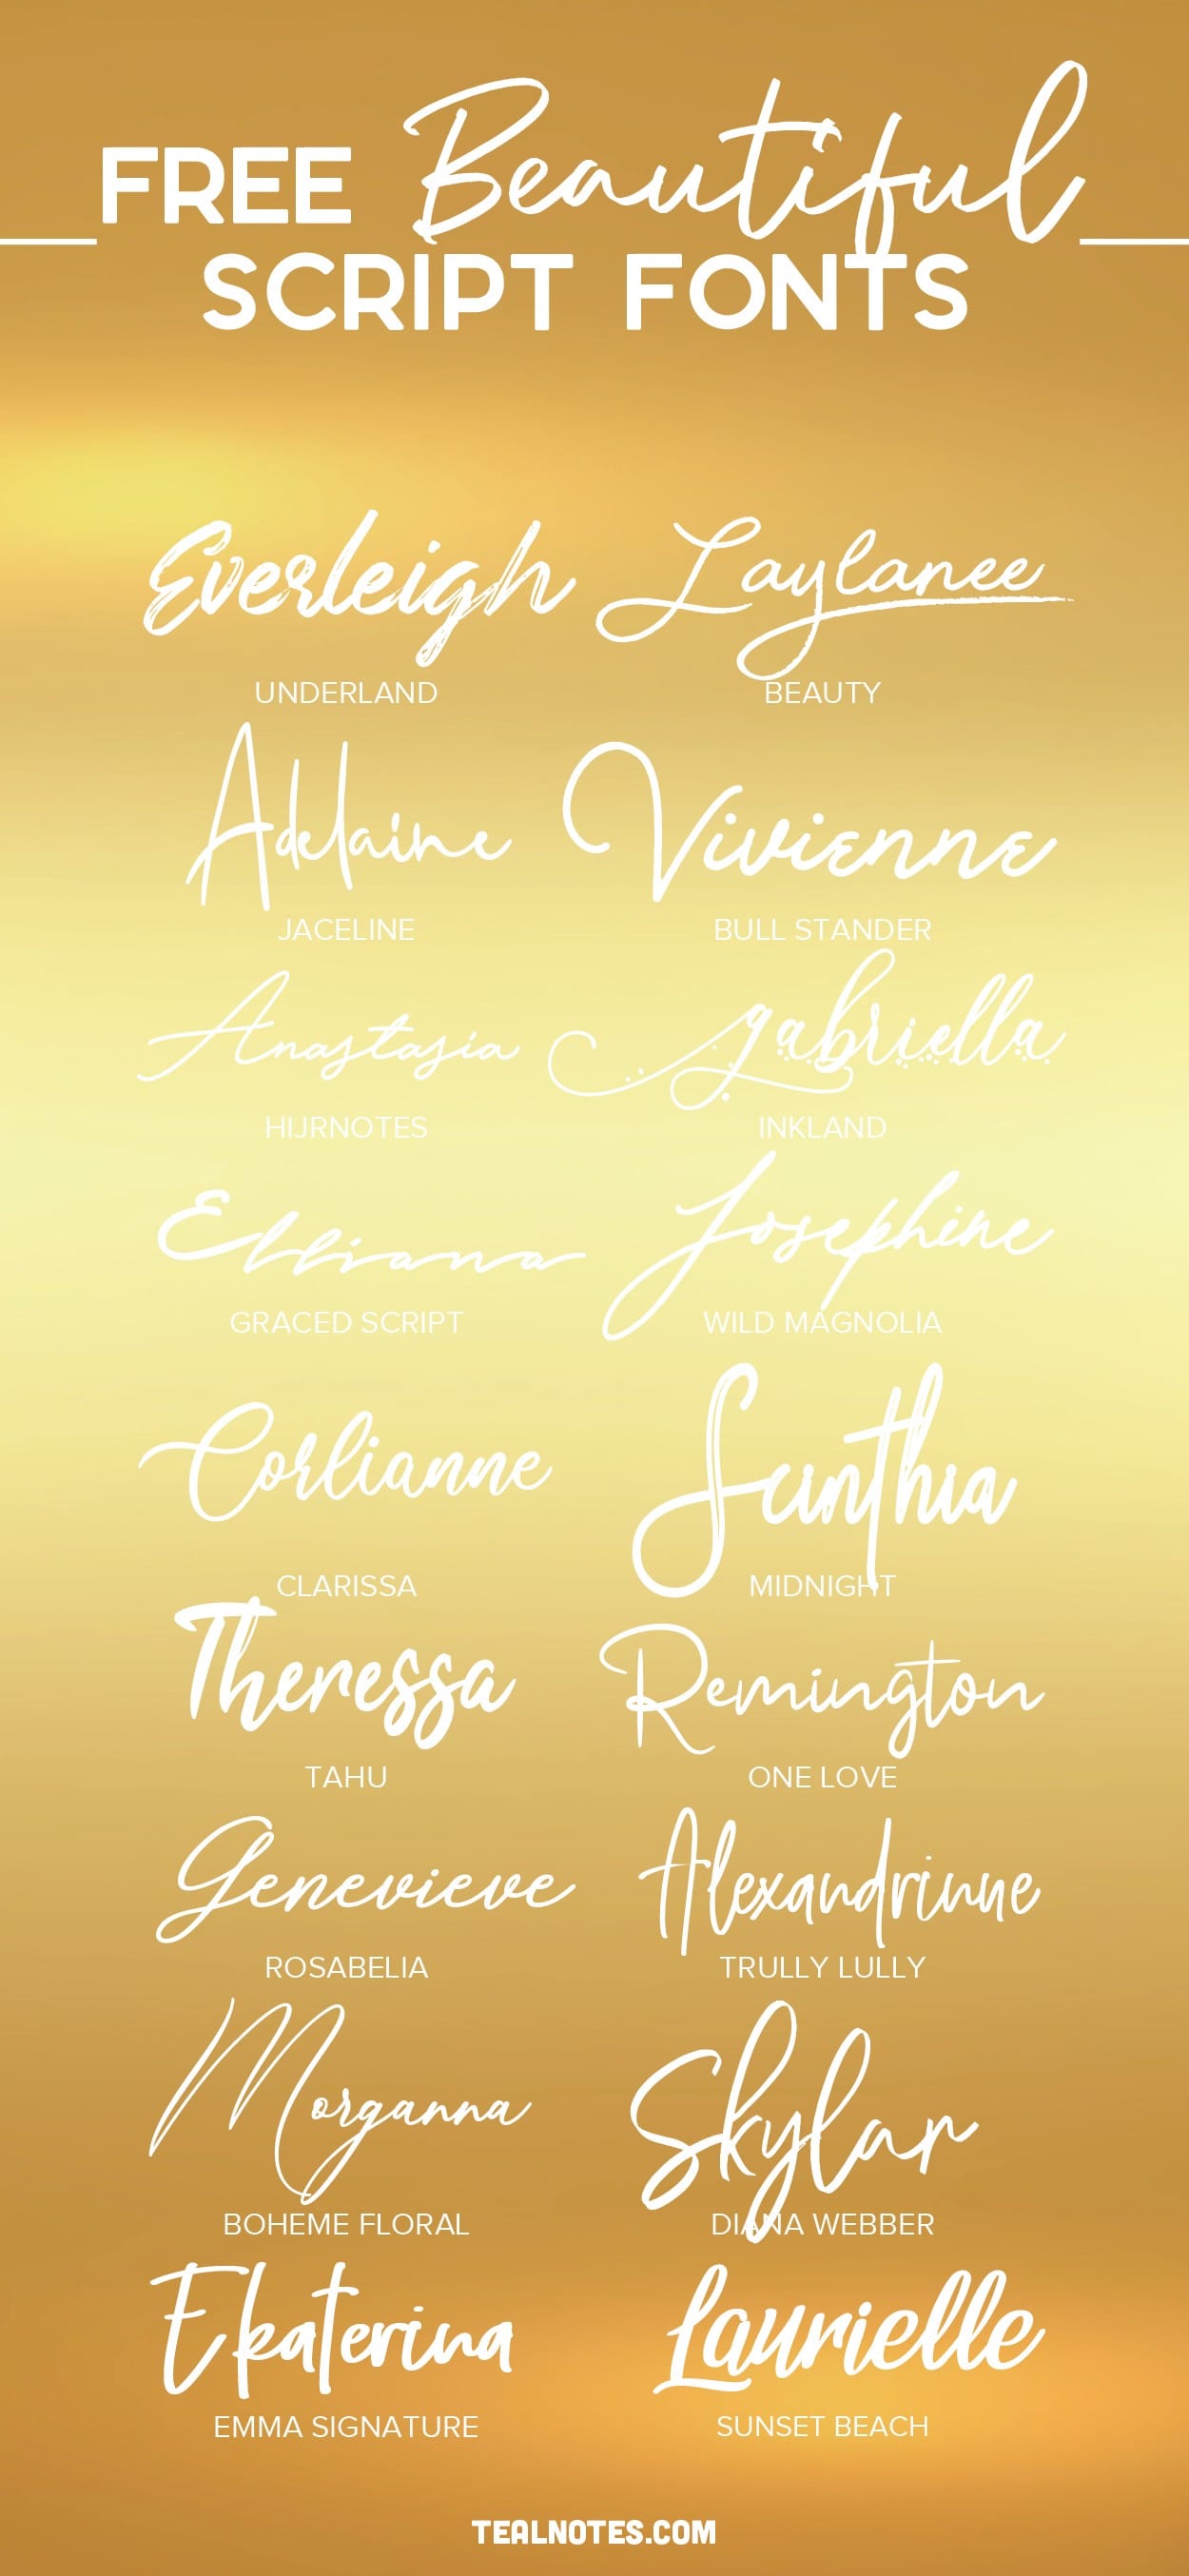 FREE Beautiful
SCRIPT FONTS
Everleigh Laylanee
UNDERLAND BEAUTY
Adelaine Vivienne
JACELINE BULL STANDER
Anastasia gabriella
HIJRNOTES INKLAND
Elliana Josephine
GRACED SCRIPT WILD MAGNOLIA
Corlianne Scinthia
CLARISSA MIDNIGHT
Theressa Remington
TAHU ONE LOVE
Genevieve Alexandrinne
ROSABELIA TRULLY LULLY
Morganna Skylar
BOHEME FLORAL DIANA WEBBER
Ekaterina Laurielle
EMMA SIGNATURE SUNSET BEACH
TEALNOTES.COM